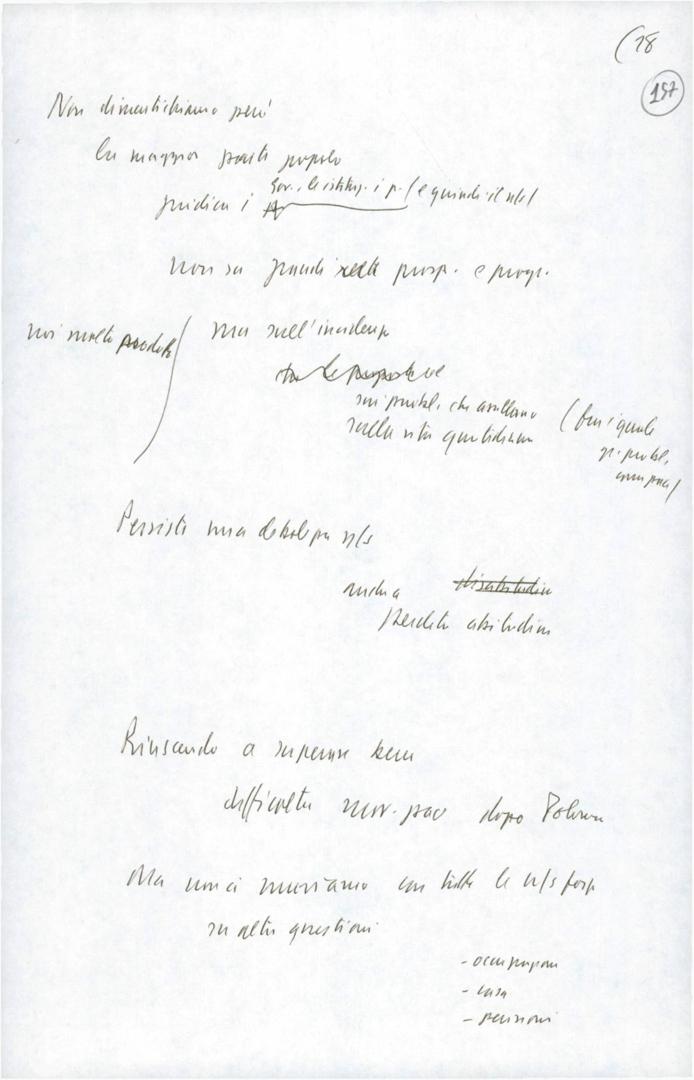 (28
157
Non dimentichiamo però
la maggior parte popolo
giudica i
gov., le istituz. i p. (e quindi il n/s)
non su grandi scelte prosp. e progr.
noi molto perduto
ma sull'incidenza
sui probl. che assillano
sulla vita quotidiana
(tra i quali
probl.
Persiste una debolezza n/s
anche
perdita abitudine
Riuscendo a superare bene
difficoltà mov. pac dopo Polonia
Ma non ci muoviamo con tutte le n/s forze
su altre questioni
- occupazione
- casa
- pensioni